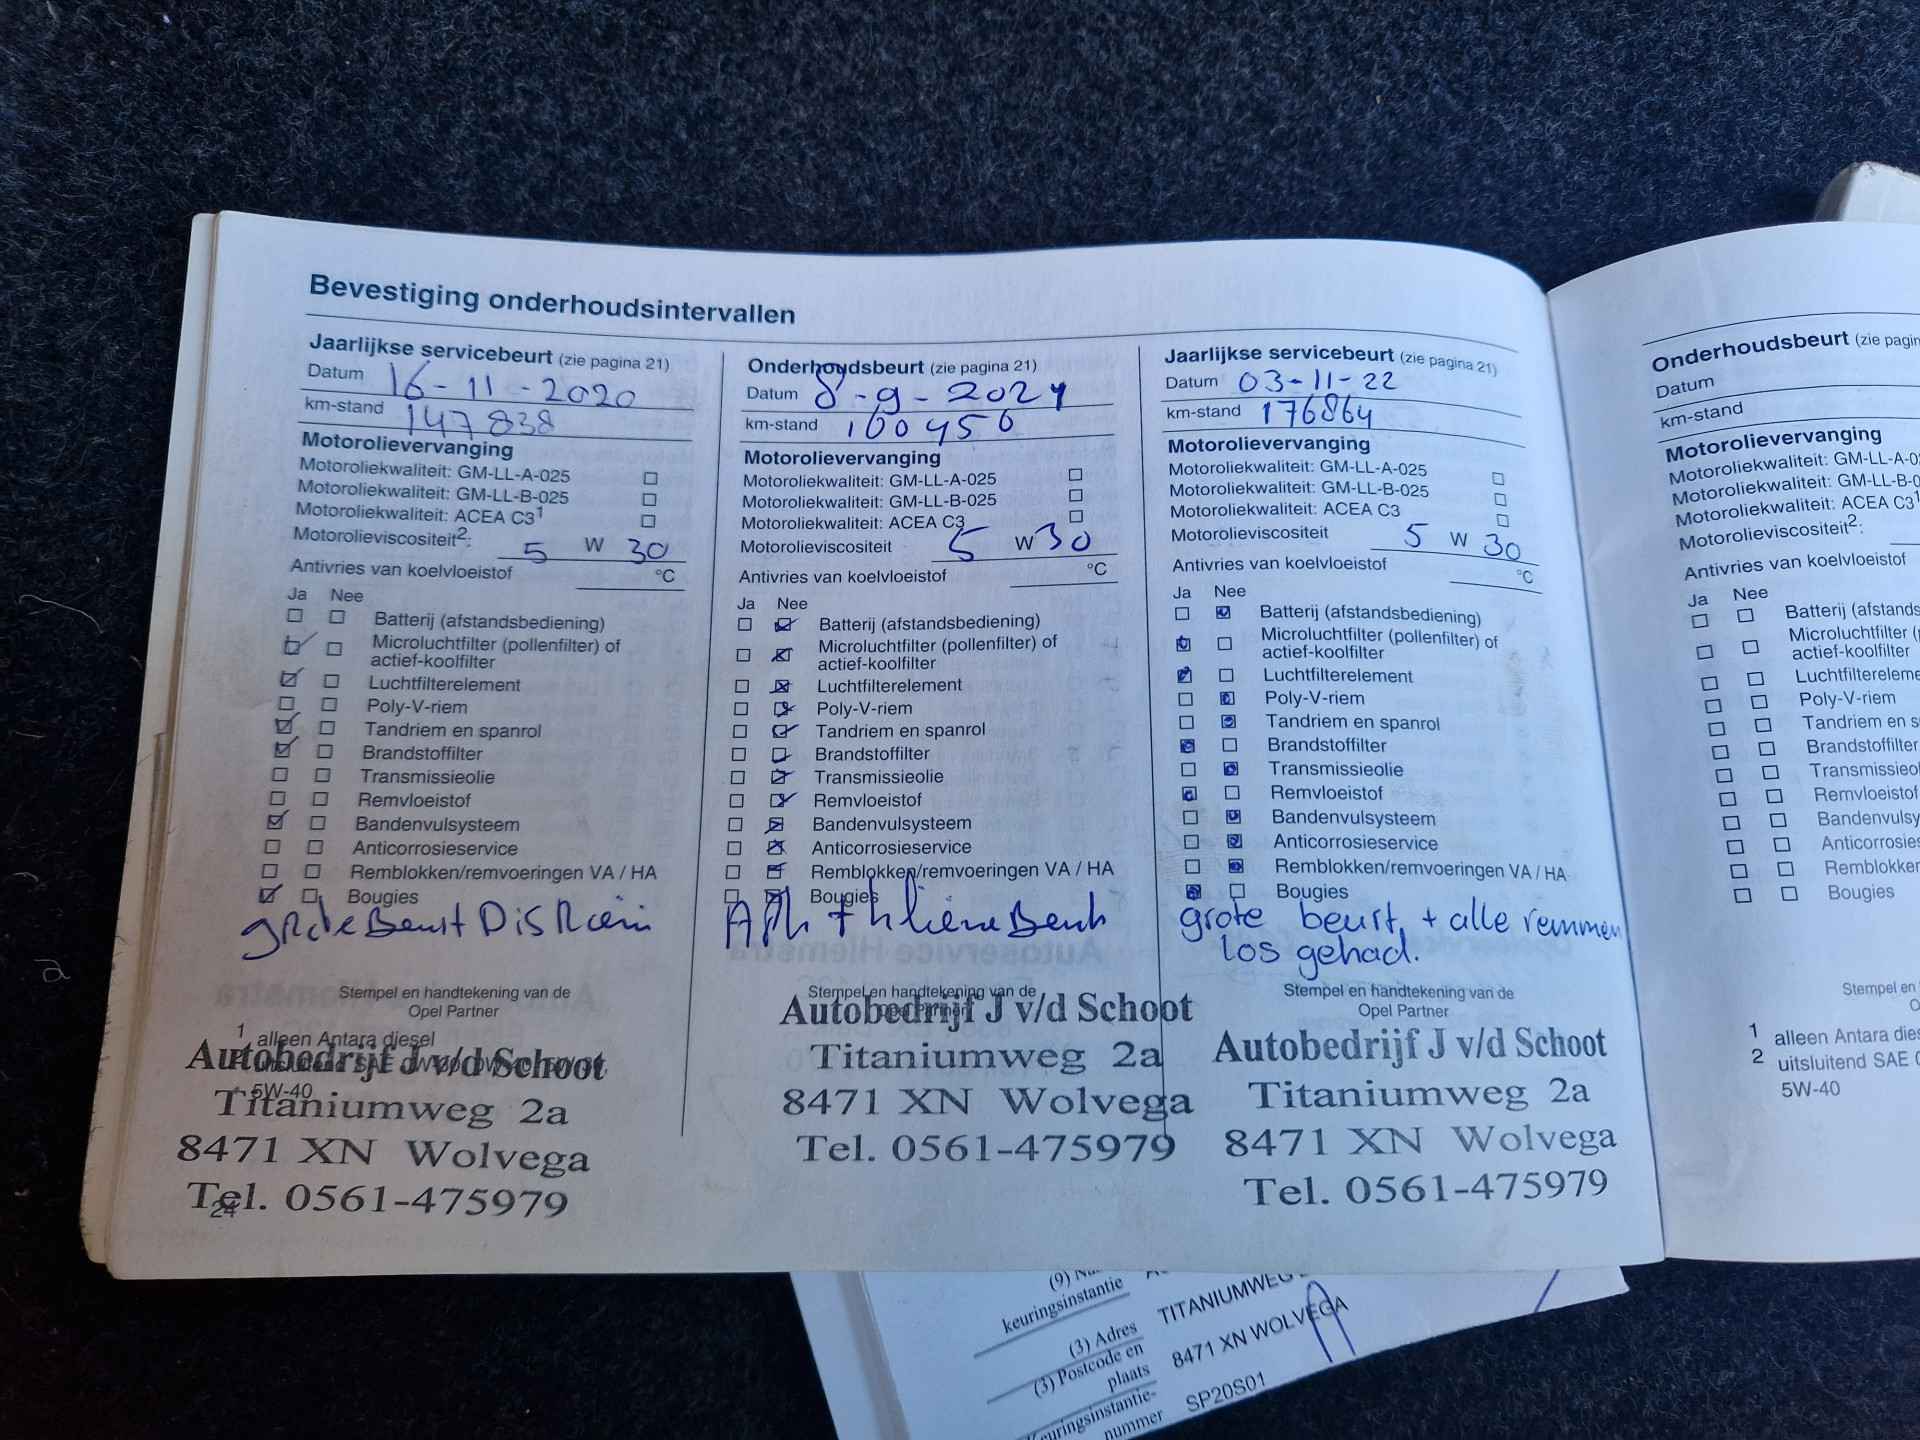 Bevestiging onderhoudsintervallen
Jaarlijkse servicebeurt (zie pagina 21)
Datum 16-11-2020
km-stand 147838
Motorolievervanging
Motoroliekwaliteit: GM-LL-A-025
Motoroliekwaliteit: GM-LL-B-025
Motoroliekwaliteit: ACEA C3¹
Motorolieviscositeit²: 5 W 30
Antivries van koelvloeistof °C
Ja Nee
Batterij (afstandsbediening)
Microluchtfilter (pollenfilter) of
actief-koolfilter
Luchtfilterelement
Poly-V-riem
Tandriem en spanrol
Brandstoffilter
Transmissieolie
Remvloeistof
Bandenvulsysteem
Anticorrosieservice
Remblokken/remvoeringen VA / HA
Bougies
grote Beurt Dis Riem
Stempel en handtekening van de
Opel Partner
1 alleen Antara diesel
5W-40
Autobedrijf J v/d Schoot
Titaniumweg 2a
8471 XN Wolvega
Tel. 0561-475979
24
Onderhoudsbeurt (zie pagina 21)
Datum 8-9-2021
km-stand 160456
Motorolievervanging
Motoroliekwaliteit: GM-LL-A-025
Motoroliekwaliteit: GM-LL-B-025
Motoroliekwaliteit: ACEA C3
Motorolieviscositeit 5 W 30
Antivries van koelvloeistof °C
Ja Nee
Batterij (afstandsbediening)
Microluchtfilter (pollenfilter) of
actief-koolfilter
Luchtfilterelement
Poly-V-riem
Tandriem en spanrol
Brandstoffilter
Transmissieolie
Remvloeistof
Bandenvulsysteem
Anticorrosieservice
Remblokken/remvoeringen VA / HA
Bougies
APK + kleine Beurt
Stempel en handtekening van de
Opel Partner
Autobedrijf J v/d Schoot
Titaniumweg 2a
8471 XN Wolvega
Tel. 0561-475979
Jaarlijkse servicebeurt (zie pagina 21)
Datum 03-11-22
km-stand 176864
Motorolievervanging
Motoroliekwaliteit: GM-LL-A-025
Motoroliekwaliteit: GM-LL-B-025
Motoroliekwaliteit: ACEA C3
Motorolieviscositeit 5 W 30
Antivries van koelvloeistof °C
Ja Nee
Batterij (afstandsbediening)
Microluchtfilter (pollenfilter) of
actief-koolfilter
Luchtfilterelement
Poly-V-riem
Tandriem en spanrol
Brandstoffilter
Transmissieolie
Remvloeistof
Bandenvulsysteem
Anticorrosieservice
Remblokken/remvoeringen VA / HA
Bougies
grote beurt + alle remmen
los gehad.
Stempel en handtekening van de
Opel Partner
Autobedrijf J v/d Schoot
Titaniumweg 2a
8471 XN Wolvega
Tel. 0561-475979
Onderhoudsbeurt (zie
Datum
km-stand
Motorolievervanging
Motoroliekwaliteit: GM-LL-A-0
Motoroliekwaliteit: GM-LL-B-0
Motoroliekwaliteit: ACEA C3¹
Motorolieviscositeit²:
Antivries van koelvloeistof
Ja Nee
Batterij (afstands
Microluchtfilter (
actief-koolfilter
Luchtfiltereleme
Poly-V-riem
Tandriem en
Brandstoffilter
Transmissieol
Remvloeistof
Bandenvulsy
Anticorrosies
Remblokken
Bougies
Stempel en
1 alleen Antara diesel
2 uitsluitend SAE
5W-40
(9)
keuringsinstantie
(3) Adres TITANIUMWEG
(3) Postcode en
plaats 8471 XN WOLVEGA
nummer SP20S01